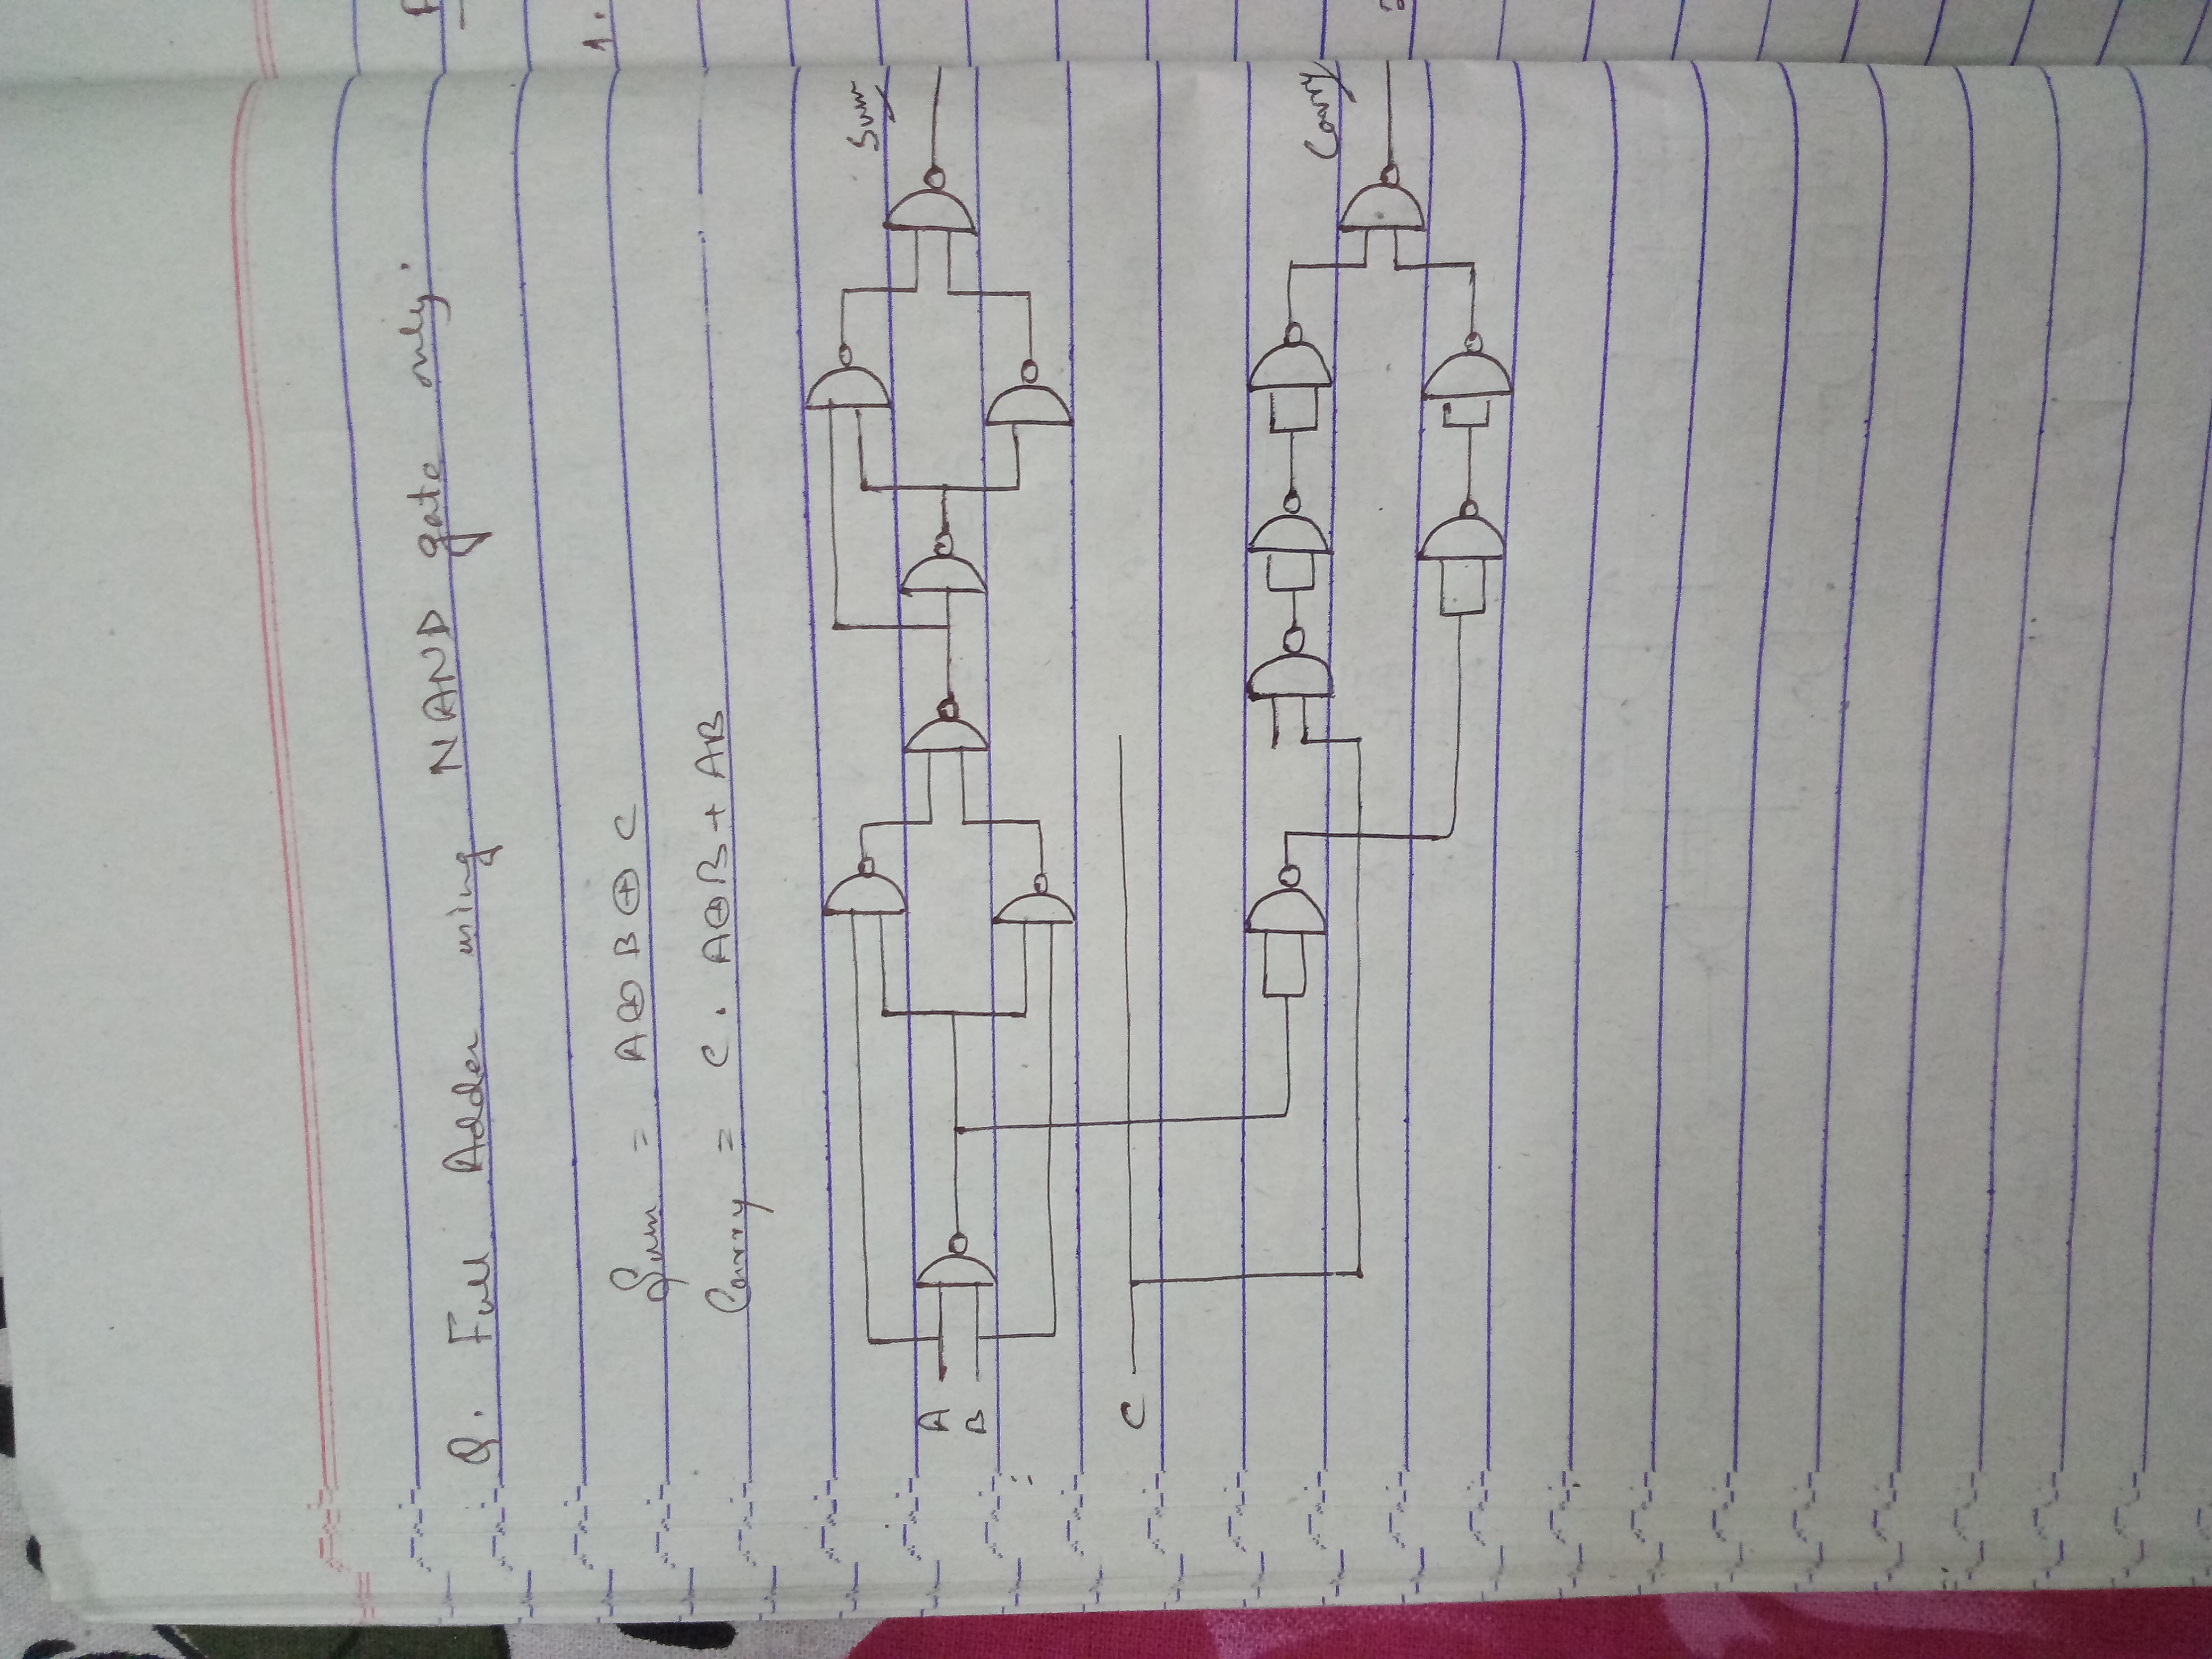 Q. Full Adder using NAND gate only.
Sum = A⊕B⊕C
Carry = C. A⊕B + AB
Sum
A
B
C
Carry
1.
2